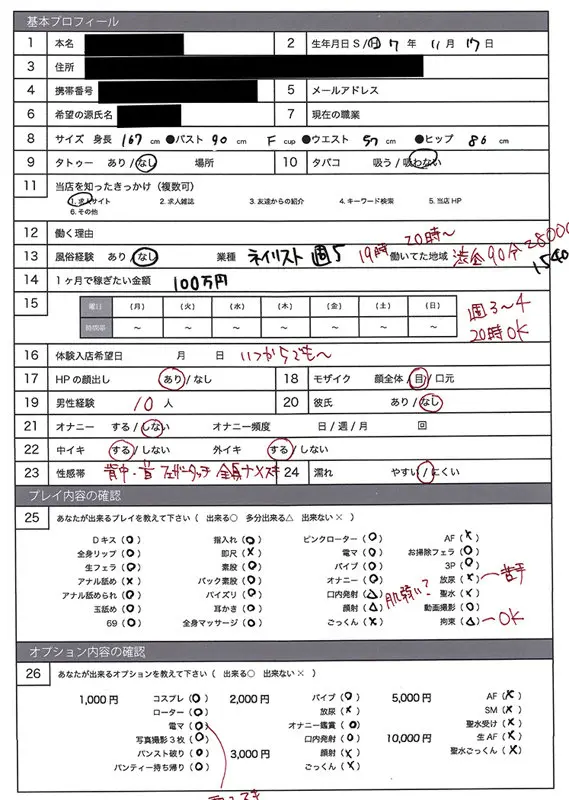 基本プロフィール
1 本名 2 生年月日 S / H 7 年 11 月 17 日
3 住所
4 携帯番号 5 メールアドレス
6 希望の源氏名 7 現在の職業
8 サイズ 身長 167 cm ●バスト 90 cm F cup ●ウエスト 57 cm ●ヒップ 86 cm
9 タトゥー あり / なし 場所 10 タバコ 吸う / 吸わない
11 当店を知ったきっかけ（複数可）
1. 求人サイト 2. 求人雑誌 3. 友達からの紹介 4. キーワード検索 5. 当店 HP
6. その他
12 働く理由 20時〜
13 風俗経験 あり / なし 業種 ネイリスト 週5 19時 働いてた地域 渋谷 90分 28000
14 1ヶ月で稼ぎたい金額 100万円
15 曜日 （月） （火） （水） （木） （金） （土） （日） 週3〜4
時間帯 〜 〜 〜 〜 〜 〜 〜 20時OK
16 体験入店希望日 月 日 いつからでも〜
17 HPの顔出し あり / なし 18 モザイク 顔全体 / 目 / 口元
19 男性経験 10 人 20 彼氏 あり / なし
21 オナニー する / しない オナニー頻度 日 / 週 / 月 回
22 中イキ する / しない 外イキ する / しない
23 性感帯 背中・首 フェザータッチ 全身ナメスキ 24 濡れ やすい / にくい
プレイ内容の確認
25 あなたが出来るプレイを教えて下さい（ 出来る○ 多分出来る△ 出来ない× ）
Dキス（○） 指入れ（○） ピンクローター（○） AF（×）
全身リップ（○） 即尺（×） 電マ（○） お掃除フェラ（○）
生フェラ（○） 素股（○） バイブ（○） 3P（○）
アナル舐め（×） バック素股（○） オナニー（○） 放尿（×）〜苦手
アナル舐められ（○） パイズリ（○） 口内発射（△） 肌弱い? 聖水（×）
玉舐め（○） 耳かき（○） 顔射（△） 動画撮影（○）
69（○） 全身マッサージ（○） ごっくん（×） 拘束（△）〜OK
オプション内容の確認
26 あなたが出来るオプションを教えて下さい（ 出来る○ 出来ない× ）
1,000円 コスプレ（○） 2,000円 バイブ（○） 5,000円 AF（×）
ローター（○） 放尿（×） SM（×）
電マ（○） オナニー鑑賞（○） 聖水受け（×）
写真撮影3枚（○） 口内発射（○） 10,000円 生AF（×）
パンスト破り（○） 3,000円 顔射（×） 聖水ごっくん（×）
パンティー持ち帰り（○） ごっくん（×）